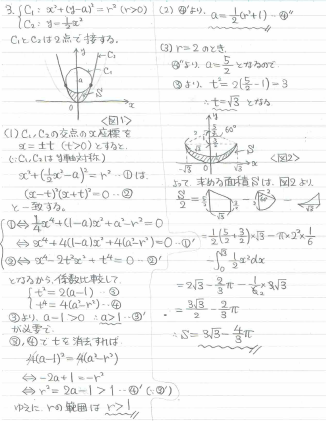 3. { C₁ : x²+(y-a)²=r² (r>0)
C₂ : y=½x²
C₁とC₂は2点で接する。
y
C₂
C₁
a
S
O
x
<図1>
(1) C₁, C₂の交点のx座標を
x=±t (t>0)とすると、
(∵C₁, C₂はy軸対称)
x²+(½x²-a)²=r² …①は
(x-t)²(x+t)²=0 …②
と一致する。
①⇔ ¼x⁴+(1-a)x²+a²-r²=0
⇔ x⁴+4(1-a)x²+4(a²-r²)=0 …①'
②⇔ x⁴-2t²x²+t⁴=0 …②'
となるから、係数比較して
{ t²=2(a-1) …③
t⁴=4(a²-r²) …④
③より、a-1>0 ∴a>1 …③'
が必要で、
③,④でtを消去すれば
4(a-1)²=4(a²-r²)
⇔ -2a+1=-r²
⇔ r²=2a-1>1 …④' (∵③')
ゆえに、rの範囲は r>1
(2) ④'より、a=½(r²+1) …④''
(3) r=2のとき、
④''より a=5/2 となるので
③より、t²=2(5/2-1)=3
∴t=√3 となる
y
60°
S
-√3
O
√3
x
<図2>
よって、求める面積Sは、図2より
S/2 = - -
=½(5/2+3/2)×√3-π×2²×1/6
-∫₀^√3 ½x²dx
=2√3-⅔π-⅙×3√3
=3√3/2-⅔π
∴S=3√3-4/3π